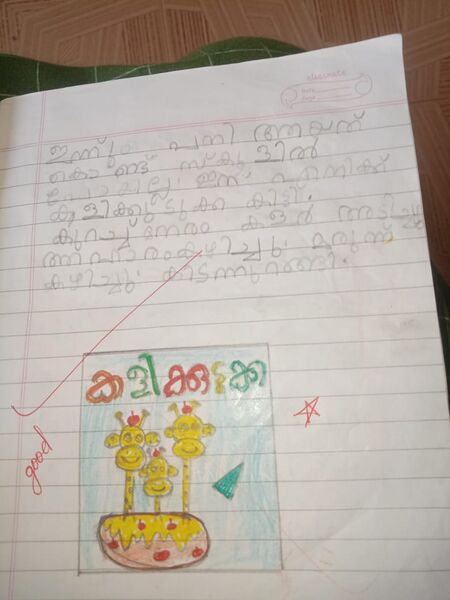 classmate
Date
Page
ഇന്നും പനി ആയത്
കൊണ്ട് സ്കൂളിൽ
പോയില്ല. ഇന്ന് എനിക്ക്
കളിക്കുടുക്ക കിട്ടി.
കുറച്ച് നേരം കളർ അടിച്ചു
കഴിച്ചു. മരുന്ന്
കഴിച്ചു. കിടന്നുറങ്ങി.
കളിക്കുടുക്ക
good